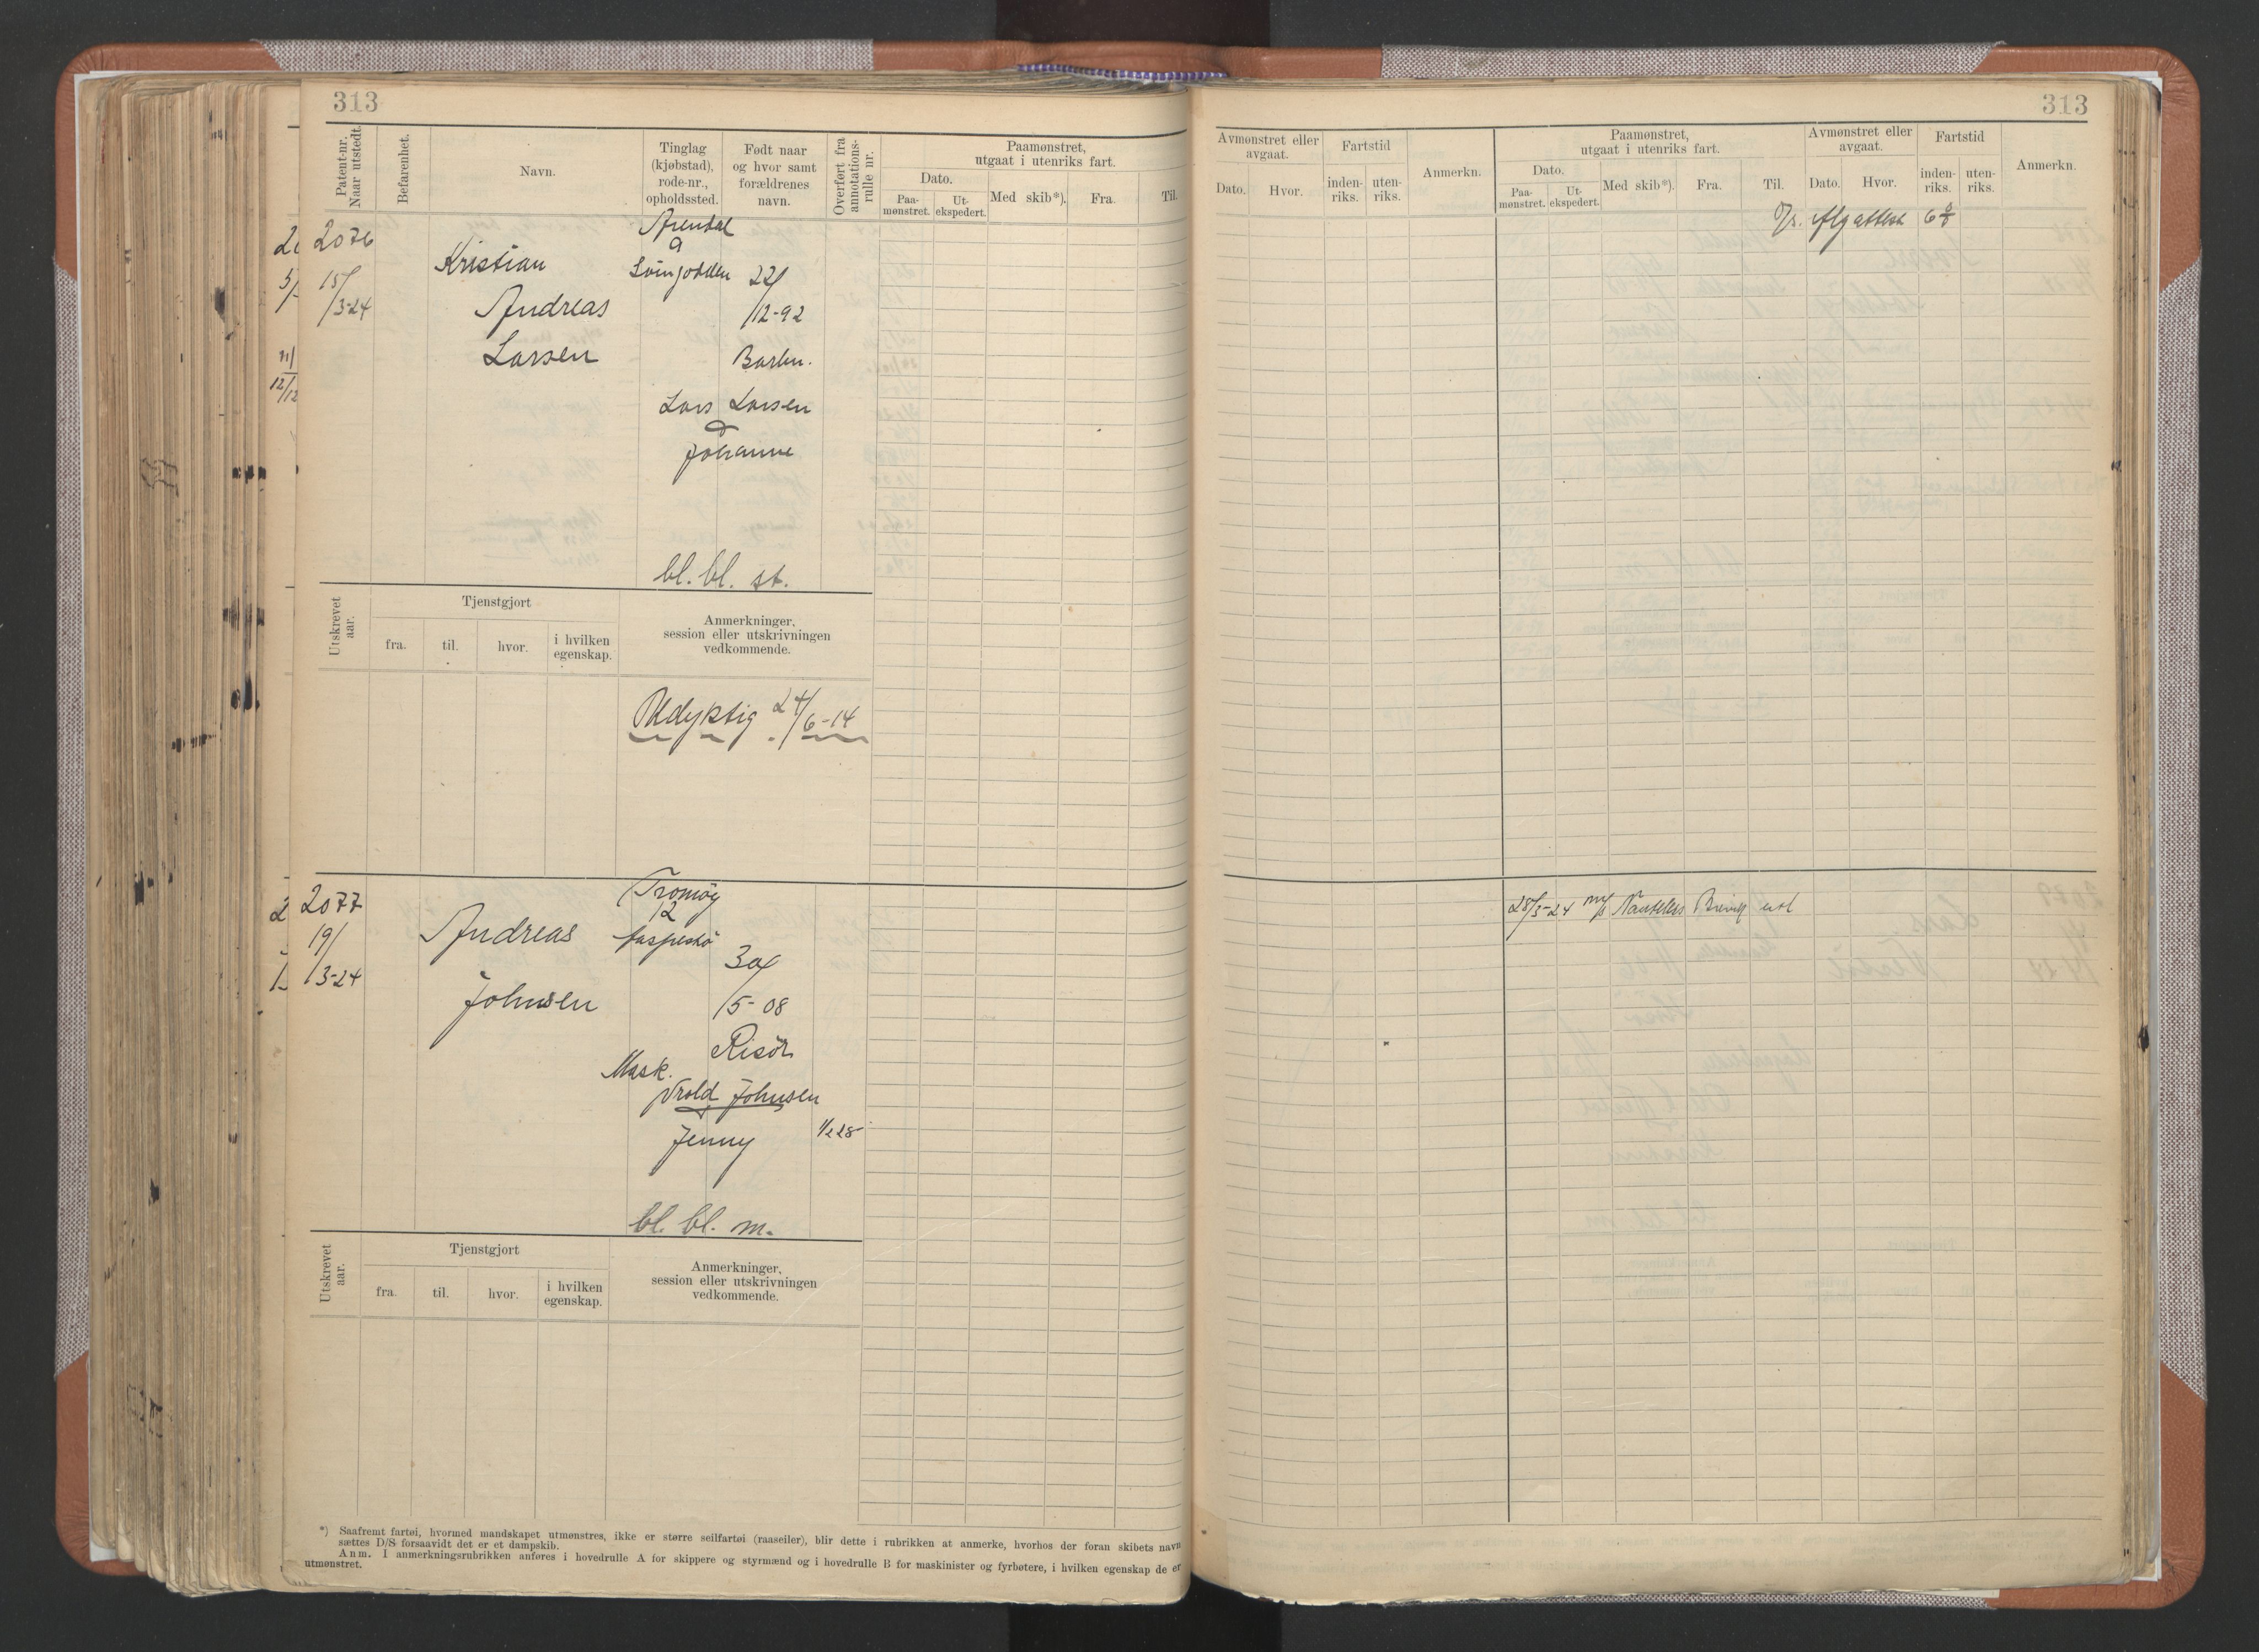 313
Patent-nr.
Naar utstedt.
Befarenhet.
Navn.
Tinglag
(kjøbstad),
rode-nr.,
opholdssted.
Født naar
og hvor samt
forældrenes
navn.
Overført fra
annotations-
rulle nr.
Paamønstret,
utgaat i utenriks fart.
Dato.
Paa-
mønstret.
Ut-
ekspedert.
Med skib*).
Fra.
Til.
2076
15/
/3-24
Kristian
Andreas
Larsen
Arendal
9
22/
/12-92
Barbu.
Lars Larsen
Johanne
bl. bl. st.
Utskrevet
aar.
Tjenstgjort
fra.
til.
hvor.
i hvilken
egenskap.
Anmerkninger,
session eller utskrivningen
vedkommende.
Udyktig 24/6-14
2077
19/
/3-24
Andreas
Johnsen
Tromøy
12
30/
/5-08
Risör
Mask.
Johnsen
Jenny
1/2 28
bl. bl. m.
Utskrevet
aar.
Tjenstgjort
fra.
til.
hvor.
i hvilken
egenskap.
Anmerkninger,
session eller utskrivningen
vedkommende.
*) Saafremt fartøi, hvormed mandskapet utmønstres, ikke er større seilfartøi (raaseiler), blir dette i rubrikken at anmerke, hvorhos der foran skibets navn
sættes D/S forsaavidt det er et dampskib.
Anm. I anmerkningsrubrikken anføres i hovedrulle A for skippere og styrmænd og i hovedrulle B for maskinister og fyrbøtere, i hvilken egenskap de er
utmønstret.
313
Avmønstret eller
avgaat.
Dato.
Hvor.
Fartstid
inden-
riks.
uten-
riks.
Anmerkn.
Paamønstret,
utgaat i utenriks fart.
Dato.
Paa-
mønstret.
Ut-
ekspedert.
Med skib*).
Fra.
Til.
Avmønstret eller
avgaat.
Dato.
Hvor.
Fartstid
inden-
riks.
uten-
riks.
Anmerkn.
28/3-24 m/s